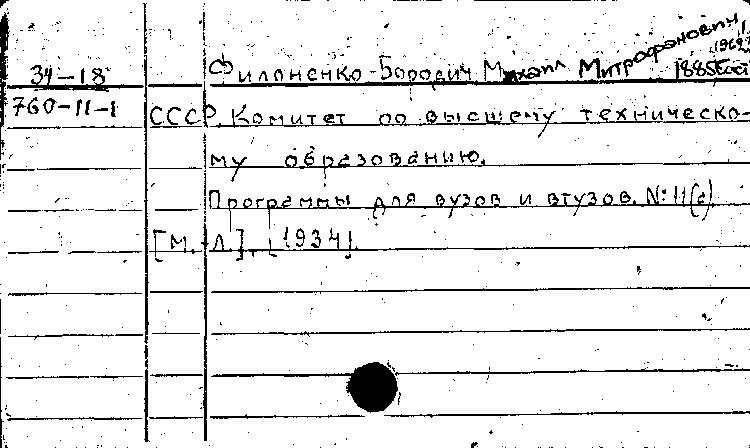 34-18
Филоненко-Бородич Михаил Митрофанович,
760-11-1
СССР. Комитет по высшему техническо-
му образованию.
Программы для вузов и втузов. №11(с)
[М.-Л.], [1934].